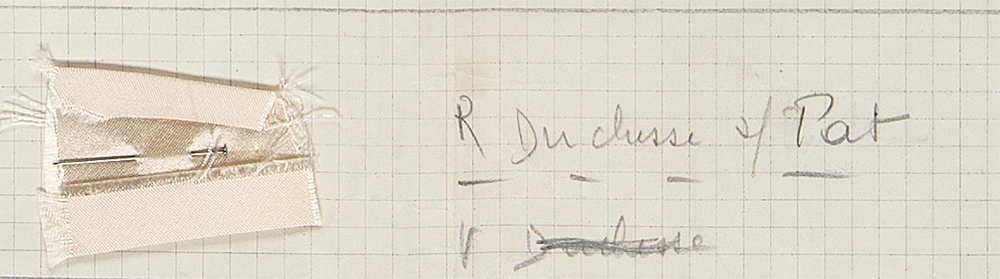 R Duchesse s/ Pat
V Duchesse